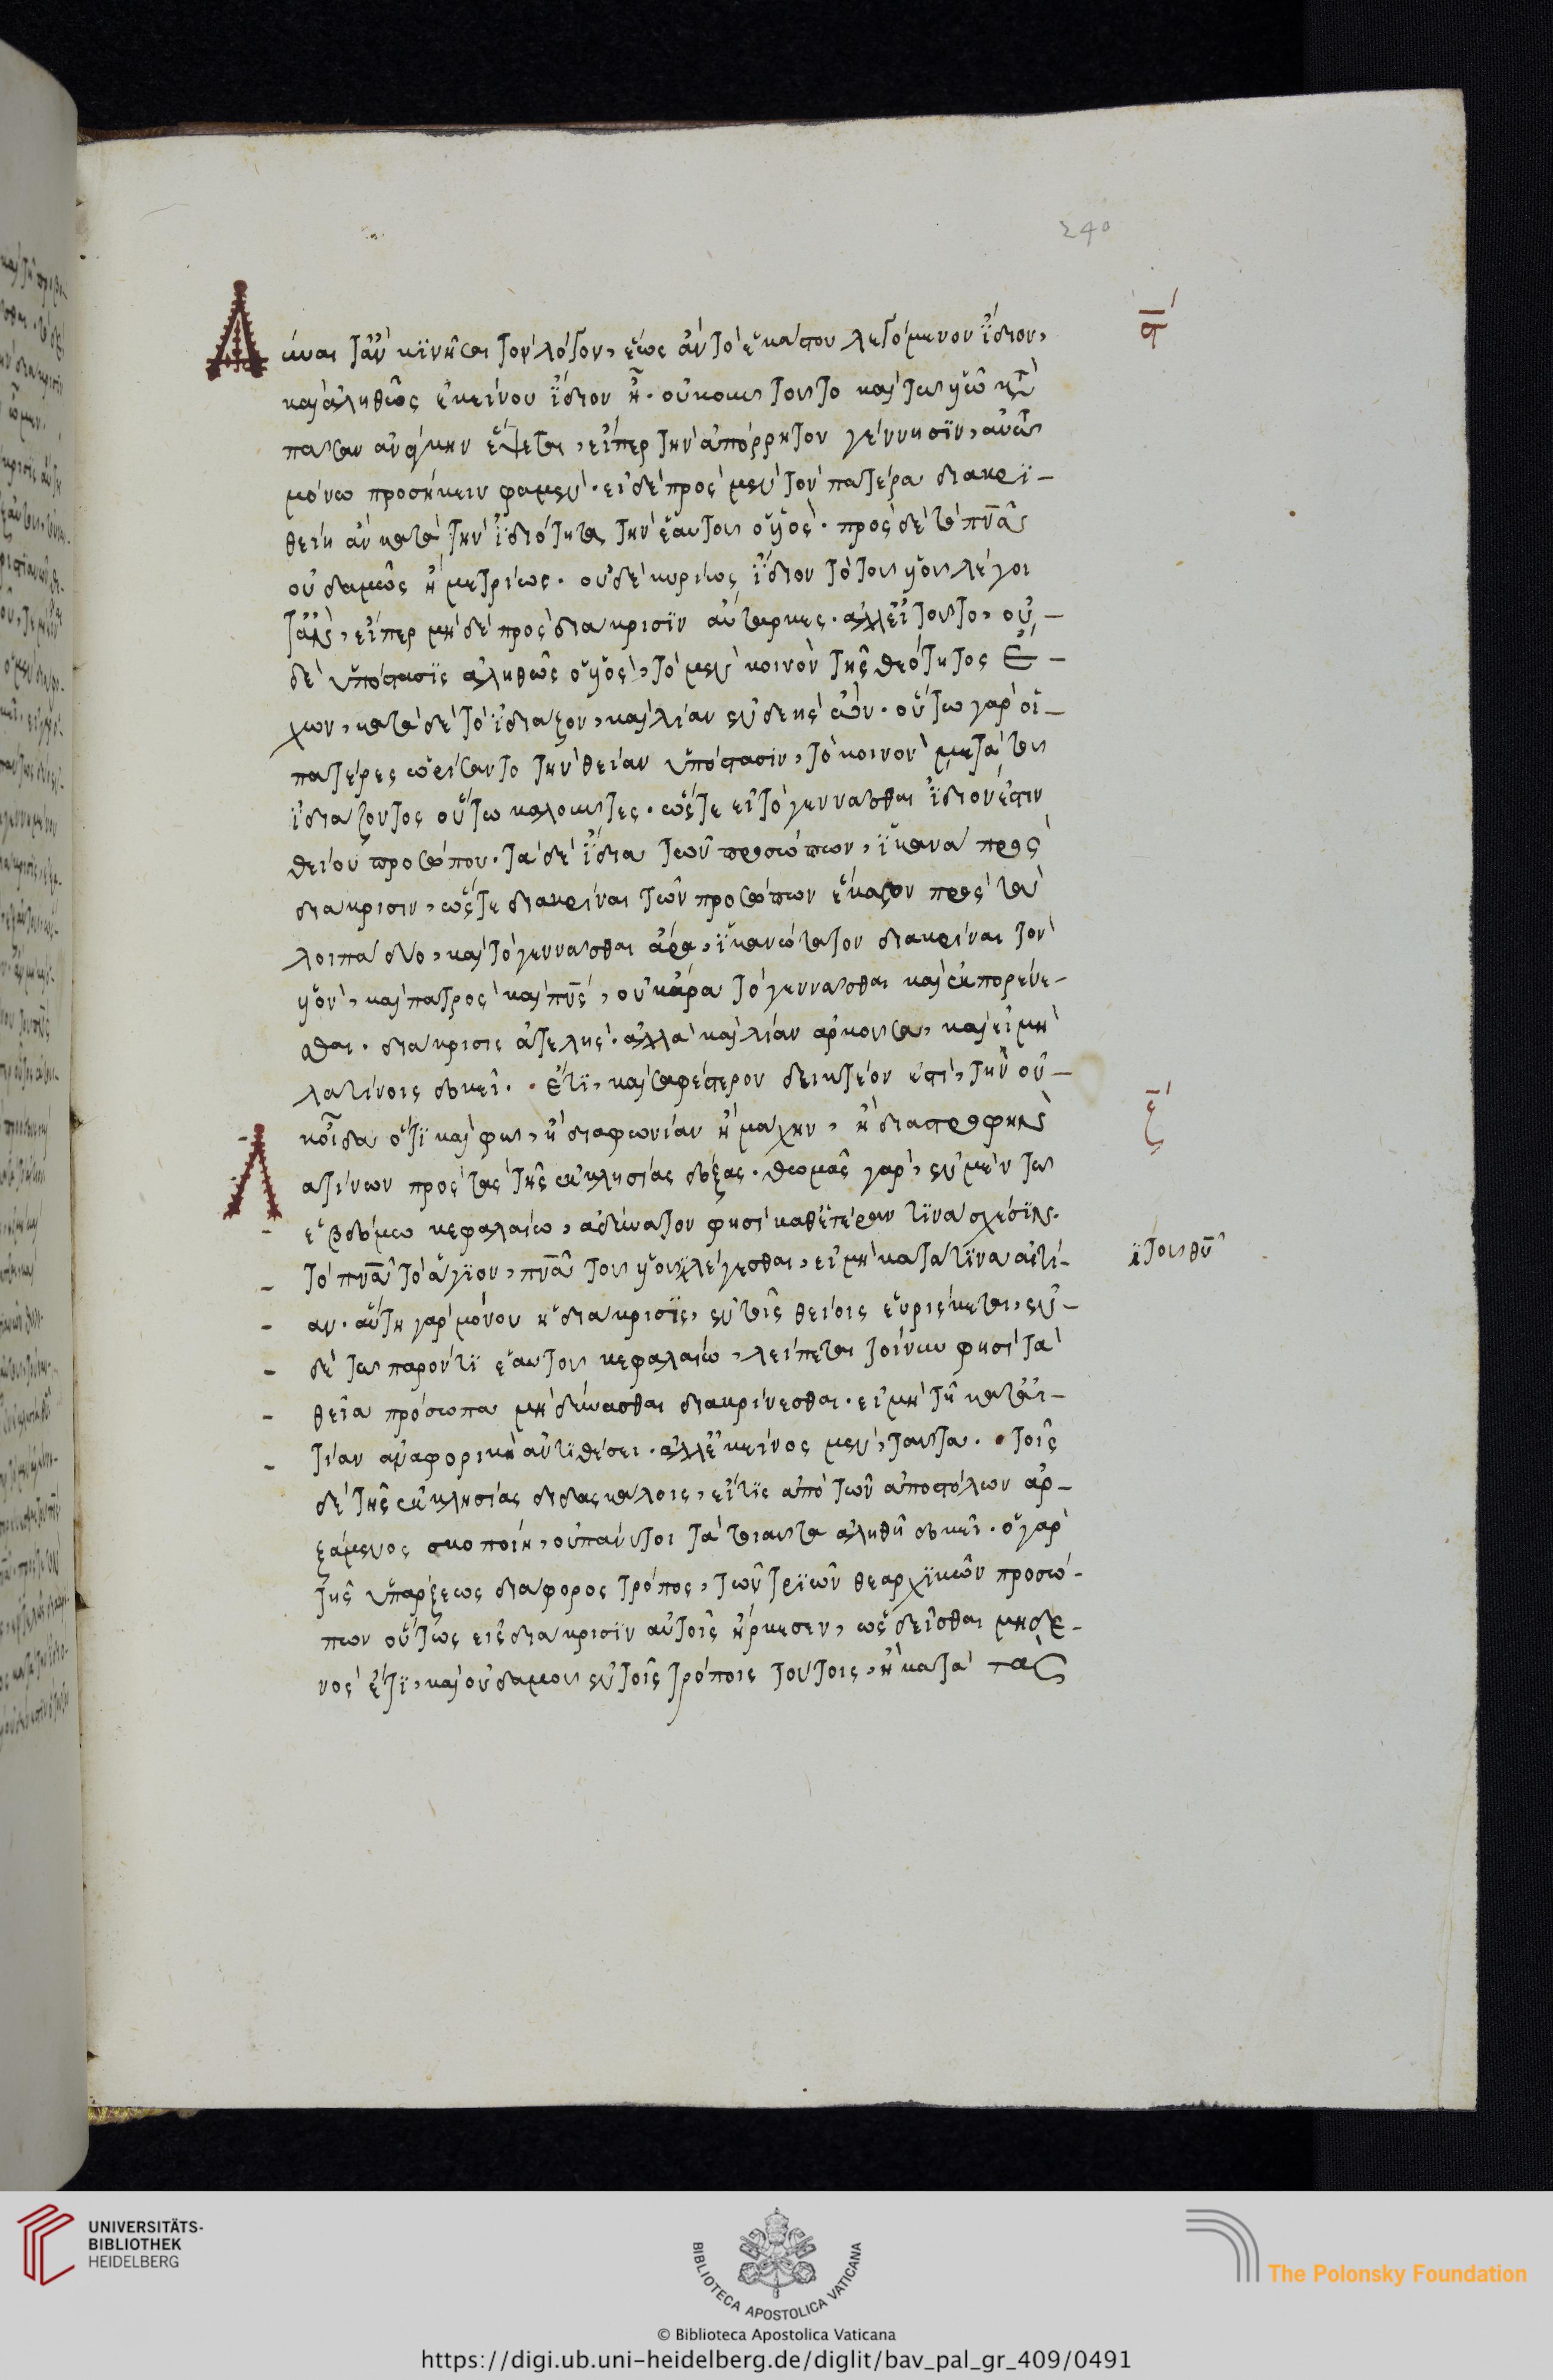 240
Δύναιτἂν κϊνῆσαι τὸν λόγον, ἕως ἂν τὸ ἑκάστου λεγόμενον ἴδιον,
καὶ ἀληθῶς ἐκείνου ἴδιον ἦ. οὐκοῦν τοῦτο καὶ τῶ υἱῶ κατὰ
πᾶσαν ἀνάγκην ἕψεται, εἴπερ τὴν ἀπόρρητον γέννησϊν, αὐτῶ
μόνω προσήκειν φαμὲν. εἰ δὲ πρὸς μὲν τὸν πατέρα διακρϊ-
θείη ἂν κατὰ τὴν ἰδιότητα τὴν ἑαυτοῦ ὁ υἱὸς. πρὸς δὲ τὸ πν̅α
οὐδαμῶς ἢ μετρίως. οὐδὲ κυρίως ἴδιον τὸ τοῦ υἱοῦ λέγοι
τἄν τὶς, εἴπερ μὴ δὲ πρὸς διάκρισϊν αὔταρκες. ἀλλ' εἰ τοῦτο, οὐ-
δὲ ὑπόστασϊς ἀληθῶς ὁ υἱὸς, τὸ μὲν κοινὸν τῆς θεότητος ἔ-
χων, κατὰ δὲ τὸ ἰδιάζον, καὶ λίαν ἐνδεὴς ὢν. οὕτω γὰρ οἱ-
πατέρες ὡρίσαντο τὴν θείαν ὑπόστασιν, τὸ κοινὸν μετὰ τοῦ
ἰδιάζοντος οὕτω καλοῦντες. ὥστε εἰ τὸ γεννᾶσθαι ἴδιόν ἐστιν
θείου προσώπου. τὰ δὲ ἴδια τῶν προσώπων, ἱκανὰ πρὸς
διάκρισιν, ὥστε διακρίναι τῶν προσώπων ἕκαστον πρὸς τὰ
λοιπὰ δύο, καὶ τὸ γεννᾶσθαι ἄρα, ἱκανώτατον διακρίναι τὸν
υἱὸν, καὶ πατρὸς καὶ πν̅ς, οὐκ ἄρα τὸ γεννᾶσθαι καὶ ἐκπορεύε-
σθαι. διάκρισις ἀτελὴς. ἀλλὰ καὶ λίαν ἀρκοῦσα, καὶ εἰ μὴ
λατίνοις δοκεῖ. ἔτϊ, καὶ σαφέστερον δεικτέον ἐστὶ, τὴν οὐ-
κ οἶδα ὅτϊ καὶ φῶ, ἢ διαφωνίαν ἢ μάχην, ἢ διαστροφὴν
Λατίνων πρὸς τὰς τῆς ἐκκλησίας δόξας. θωμᾶς γὰρ, ἐν μὲν τῶ
ἑβδόμω κεφαλαίω, ἀδύνατον φησὶ καθ' ἑτέραν τϊνὰ σχέσϊν.
τὸ πν̅α τὸ ἅγϊον, πν̅α τοῦ υἱοῦ λέγεσθαι, εἰ μὴ κατὰ τϊνα αἰτί-
ϊ τοῦ θυ̅
αν. αὕτη γὰρ μόνον ἡ διάκρισϊς, ἐν τοῖς θείοις εὑρίσκεται, ἐν-
δὲ τῶ παρόντϊ ἑαυτοῦ κεφαλαίω, λείπεται τοίνυν φησὶ τὰ
θεῖα πρόσωπα μὴ δύνασθαι διακρίνεσθαι. εἰ μὴ τῆ κατ' αἰ-
τίαν ἀναφορικῆ ἀντϊθέσει. ἀλλ' ἐκεῖνος μὲν, ταῦτα. τοῖς
δὲ τῆς ἐκκλησίας διδασκάλοις, εἴ τϊς ἀπὸ τῶν ἀποστόλων ἀρ-
ξάμενος σκοποίη, οὐ πάντοι τὰ τοιαῦτα ἀληθῆ δοκεῖ. ὁ γὰρ
τῆς ὑπάρξεως διάφορος τρόπος, τῶν τριῶν θεαρχϊκῶν προσώ-
πων οὕτως εἰς διάκρισϊν αὐτοῖς ἤρκεσεν, ὡς δεῖσθαι μηδε-
νὸς ἔτϊ, καὶ οὐδαμοῦ ἐν τοῖς τρόποις τούτοις, ἢ κατὰ τὰς
UNIVERSITÄTS-
BIBLIOTHEK
HEIDELBERG
BIBLIOTECA APOSTOLICA VATICANA
The Polonsky Foundation
© Biblioteca Apostolica Vaticana
https://digi.ub.uni-heidelberg.de/diglit/bav_pal_gr_409/0491